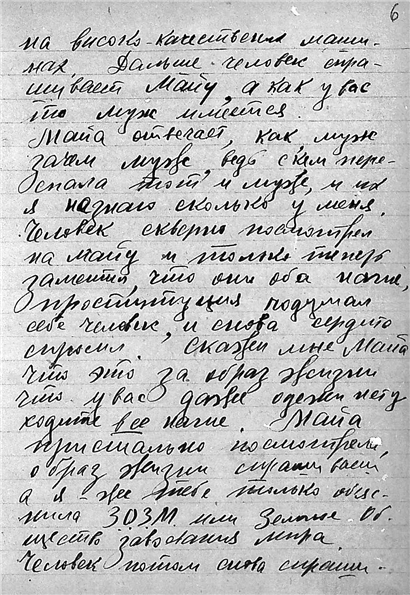 6
на високо-качественых маши-
нах Дальше человек спра-
шивает Майу, а как у вас
то муж имеется.
Майа отвечает, как муж
зачем муже, ведь с кем пере-
спала тот и муже, и их
я назнаю сколько у меня.
Человек скверно посмотрел
на Майу и только теперь
заметил, что они оба нагие,
проституция подумал
себе человек, и снова сердито
спросил. Скажи мне Майа
что это за образ жизни
что у вас даже одежи нету
ходите все нагие. Майа
пристально посмотрела,
образ жизни спрашиваеш
а я же тебе только обияс-
нила ЗОЗМ или Земное Об
щество завоевания мира.
Человек потом снова спраши-